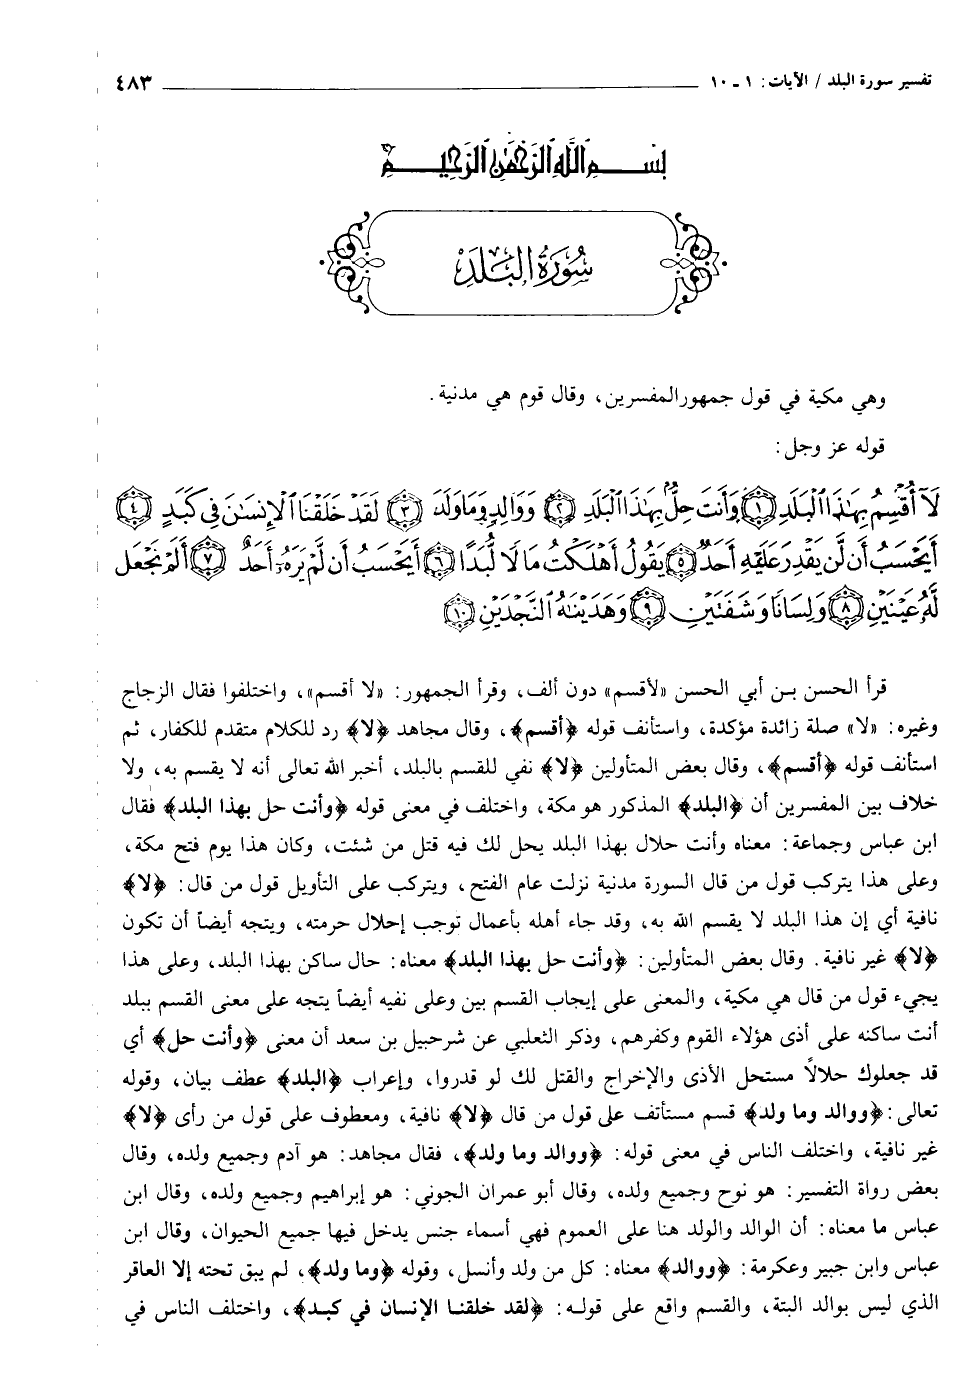 تفسير سورة البلد / الآيات: ١ - ١٠ ٤٨٣
بسم الله الرحمن الرحيم
سورة البلد
وهي مكية في قول جمهورالمفسرين، وقال قوم هي مدنية.
قوله عز وجل:
لَآ أُقْسِمُ بِهَٰذَا ٱلْبَلَدِ ﴿١﴾ وَأَنتَ حِلٌّۢ بِهَٰذَا ٱلْبَلَدِ ﴿٢﴾ وَوَالِدٍ وَمَا وَلَدَ ﴿٣﴾ لَقَدْ خَلَقْنَا ٱلْإِنسَٰنَ فِى كَبَدٍ ﴿٤﴾
أَيَحْسَبُ أَن لَّن يَقْدِرَ عَلَيْهِ أَحَدٌ ﴿٥﴾ يَقُولُ أَهْلَكْتُ مَالًا لُّبَدًا ﴿٦﴾ أَيَحْسَبُ أَن لَّمْ يَرَهُۥٓ أَحَدٌ ﴿٧﴾ أَلَمْ نَجْعَل
لَّهُۥ عَيْنَيْنِ ﴿٨﴾ وَلِسَانًا وَشَفَتَيْنِ ﴿٩﴾ وَهَدَيْنَٰهُ ٱلنَّجْدَيْنِ ﴿١٠﴾
قرأ الحسن بـن أبي الحسن «لأقسم» دون ألف، وقرأ الجمهور: «لا أقسم»، واختلفوا فقال الزجاج
وغيره: «لا» صلة زائدة مؤكدة، واستأنف قوله ﴿أقسم﴾، وقال مجاهد ﴿لا﴾ رد للكلام متقدم للكفار، ثم
استأنف قوله ﴿أقسم﴾، وقال بعض المتأولين ﴿لا﴾ نفي للقسم بالبلد، أخبر الله تعالى أنه لا يقسم به، ولا
خلاف بين المفسرين أن ﴿البلد﴾ المذكور هو مكة، واختلف في معنى قوله ﴿وأنت حل بهذا البلد﴾ فقال
ابن عباس وجماعة: معناه وأنت حلال بهذا البلد يحل لك فيه قتل من شئت، وكان هذا يوم فتح مكة،
وعلى هذا يتركب قول من قال السورة مدنية نزلت عام الفتح، ويتركب على التأويل قول من قال: ﴿لا﴾
نافية أي إن هذا البلد لا يقسم الله به، وقد جاء أهله بأعمال توجب إحلال حرمته، ويتجه أيضاً أن تكون
﴿لا﴾ غير نافية. وقال بعض المتأولين: ﴿وأنت حل بهذا البلد﴾ معناه: حال ساكن بهذا البلد، وعلى هذا
يجيء قول من قال هي مكية، والمعنى على إيجاب القسم بين وعلى نفيه أيضاً يتجه على معنى القسم ببلد
أنت ساكنه على أذى هؤلاء القوم وكفرهم، وذكر الثعلبي عن شرحبيل بن سعد أن معنى ﴿وأنت حل﴾ أي
قد جعلوك حلالاً مستحل الأذى والإخراج والقتل لك لو قدروا، وإعراب ﴿البلد﴾ عطف بيان، وقوله
تعالى: ﴿ووالد وما ولد﴾ قسم مستأنف على قول من قال ﴿لا﴾ نافية، ومعطوف على قول من رأى ﴿لا﴾
غير نافية، واختلف الناس في معنى قوله: ﴿ووالد وما ولد﴾، فقال مجاهد: هو آدم وجميع ولده، وقال
بعض رواة التفسير: هو نوح وجميع ولده، وقال أبو عمران الجوني: هو إبراهيم وجميع ولده، وقال ابن
عباس ما معناه: أن الوالد والولد هنا على العموم فهي أسماء جنس يدخل فيها جميع الحيوان، وقال ابن
عباس وابن جبير وعكرمة: ﴿ووالد﴾ معناه: كل من ولد وأنسل، وقوله ﴿وما ولد﴾، لم يبق تحته إلا العاقر
الذي ليس بوالد البتة، والقسم واقع على قولـه: ﴿لقد خلقنـا الإنسان في كبـد﴾، واختلف الناس في